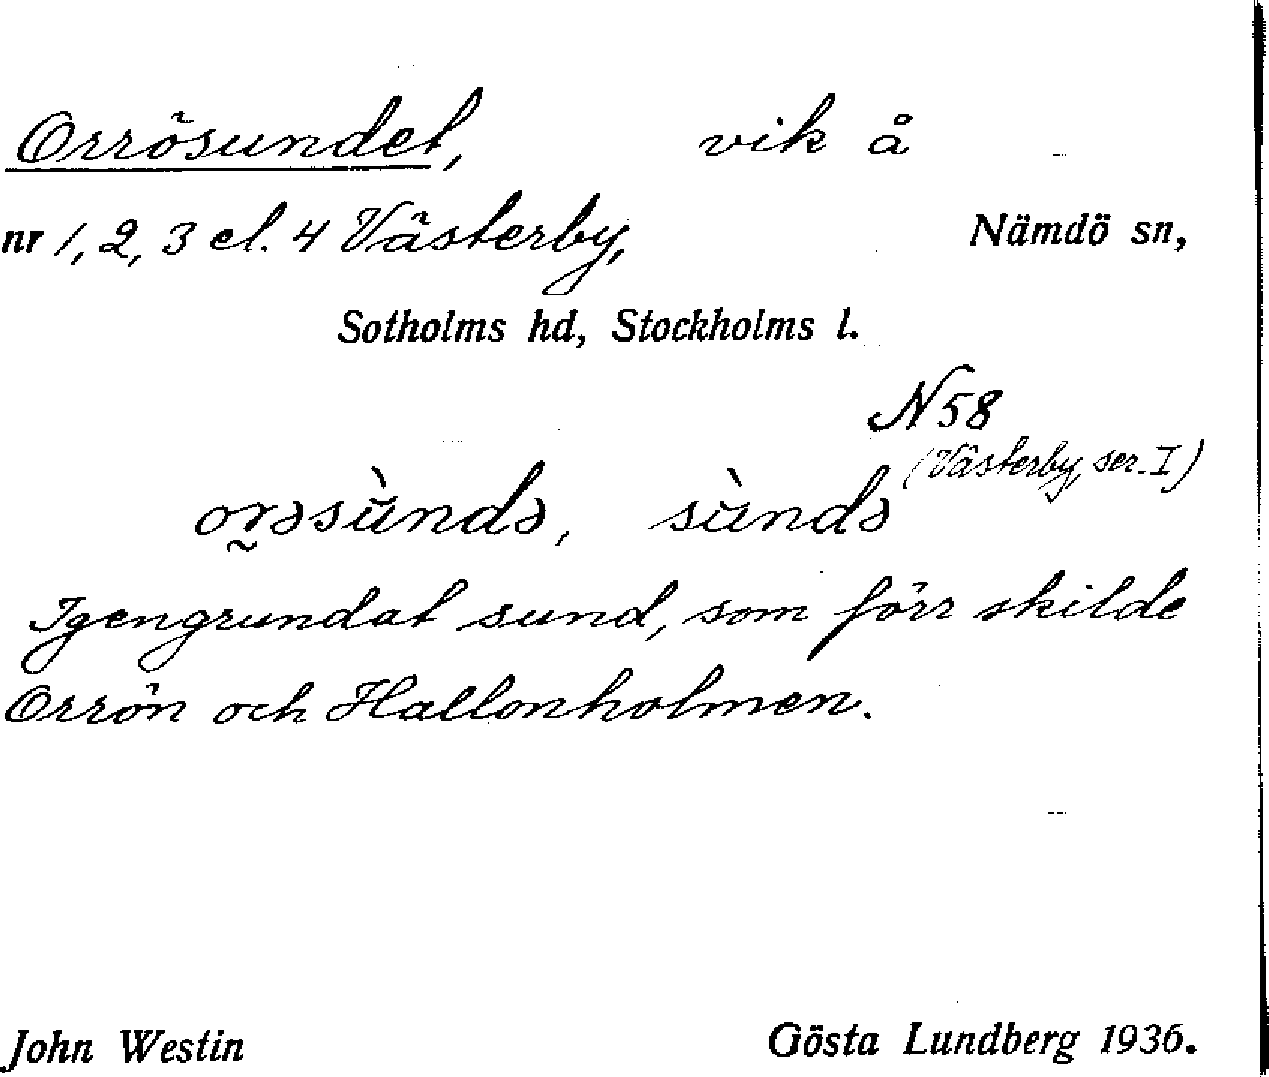 Orrösundet, vik å
nr 1, 2, 3 el. 4 Västerby, Nämdö sn,
Sotholms hd, Stockholms l.
N 58
(Västerby, ser. I)
or̰əsùndə, sùndə
Igengrundat sund, som förr skilde
Orrön och Hallonholmen.
John Westin Gösta Lundberg 1936.